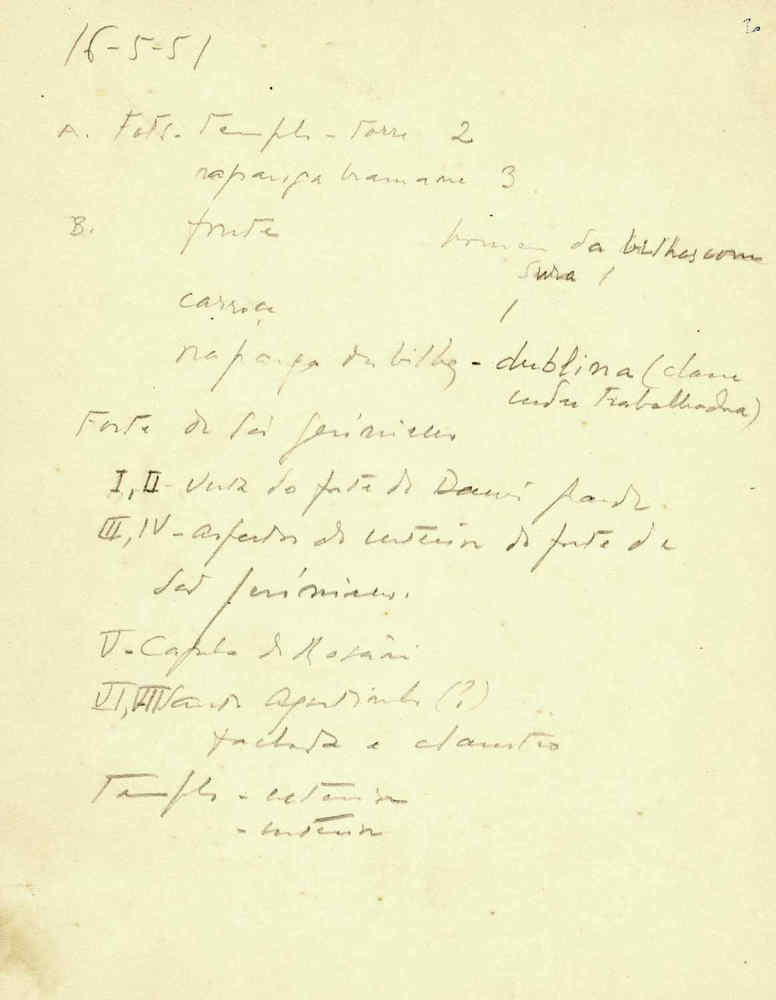 20
16-5-51
A. Fots. Templo - torre 2
rapariga bramane 3
B. fonte homem da bilhas com
sura 1
carroça 1
rapariga da bilha - dublina (
trabalhadora)
Forte de São Jerónimo
I, II - vista do forte de Damão grande
III, IV - aspectos do interior do forte de
São Jerónimo.
V - Capela do Rosário
VI, VII Santo Agostinho (?)
fachada e claustro
Templo - exterior
- interior